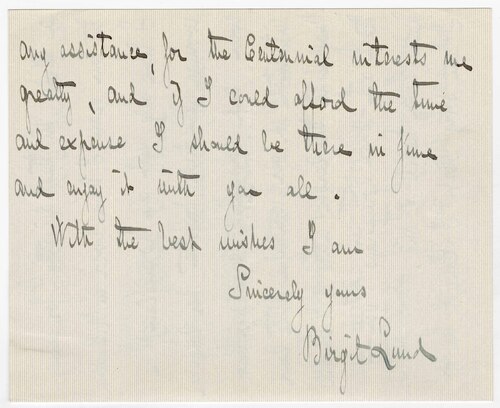 any assistance, for the Centennial interests me
greatly, and if I could afford the time
and expense, I should be there in June
and enjoy it with you all.
With the best wishes I am
Sincerely yours
Birgit Lund